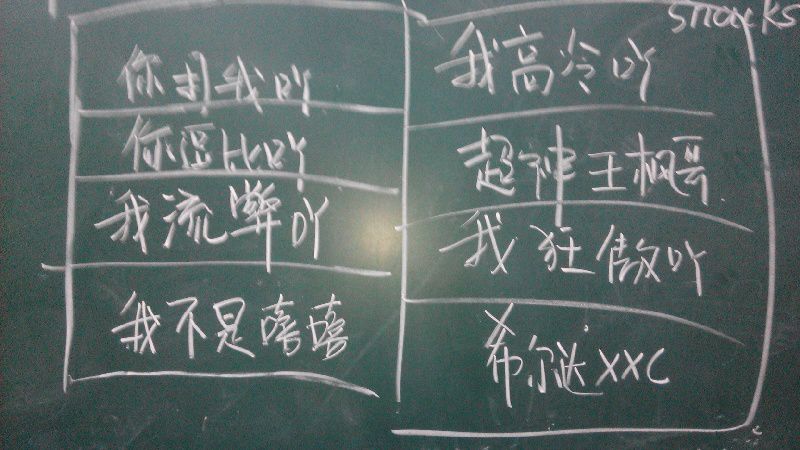 snacks
你打我吖
你逗比吖
我流弊吖
我不是嘻嘻
我高冷吖
超神王枫哥
我狂傲吖
希尔达XXC